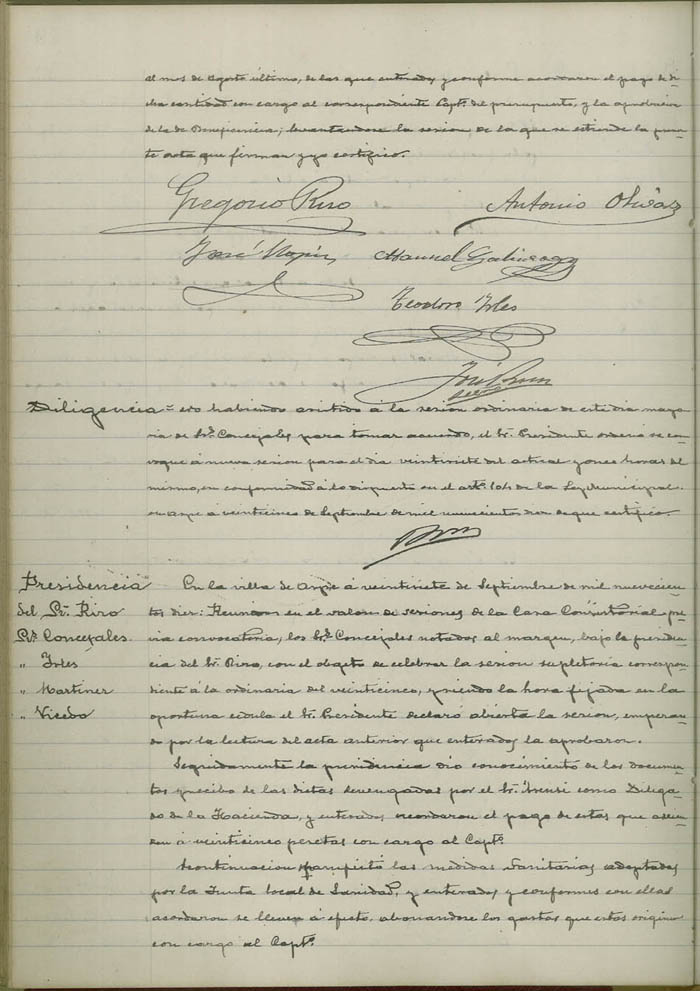 al mes de Agosto último, de las que enterados y conforme acordaron el pago de di-
cha cantidad con cargo al correspondiente Capto. del presupuesto, y la aprobación
de la de Beneficencia; levantandose la sesion de la que se estiende la presen-
te acta que firman y yo certifico.
Gregorio Riro Antonio Olivar
José Manuel Galinsoga
Teodoro Yrles
José
Diligencia = No habiendo asistido á la sesion ordinaria de este dia mayo-
ria de Sres. Concejales para tomar acuerdo, el Sr. Presidente ordenó se con-
voque á nueva sesion para el dia veintisiete del actual y once horas del
mismo, en conformidad á lo dispuesto en el artº. 104 de la Ley Municipal.
en Aspe á veinticinco de Septiembre de mil novecientos diez de que certifico.
Presidencia
del Sr. Riro
Sres. Concejales.
" Yrles
" Martinez
" Vicedo
En la villa de Aspe á veintisiete de Septiembre de mil novecien-
tos diez: Reunidos en el salon de sesiones de la Casa Consistorial pre-
via convocatoria, los Sres. Concejales notados al margen, bajo la presiden-
cia del Sr. Riro, con el objeto de celebrar la sesion supletoria correspon-
diente á la ordinaria del veinticinco, y siendo la hora fijada en la
oportuna cédula el Sr. Presidente declaró abierta la sesion, empezan-
do por la lectura del acta anterior que enterados la aprobaron.
Seguidamente la presidencia dio conocimiento de los documen-
tos y recibo de las dietas devengadas por el Sr. Asensi como Delega-
do de la Hacienda, y enterados acordaron el pago de estas que ascien-
den á veinticinco pesetas con cargo al Capto.
Acontinuacion manifestó las medidas Sanitarias adoptadas
por la Junta local de Sanidad, y enterados y conformes con ellas
acordaron se lleven á efecto, abonandose los gastos que estas origine
con cargo al Capto.